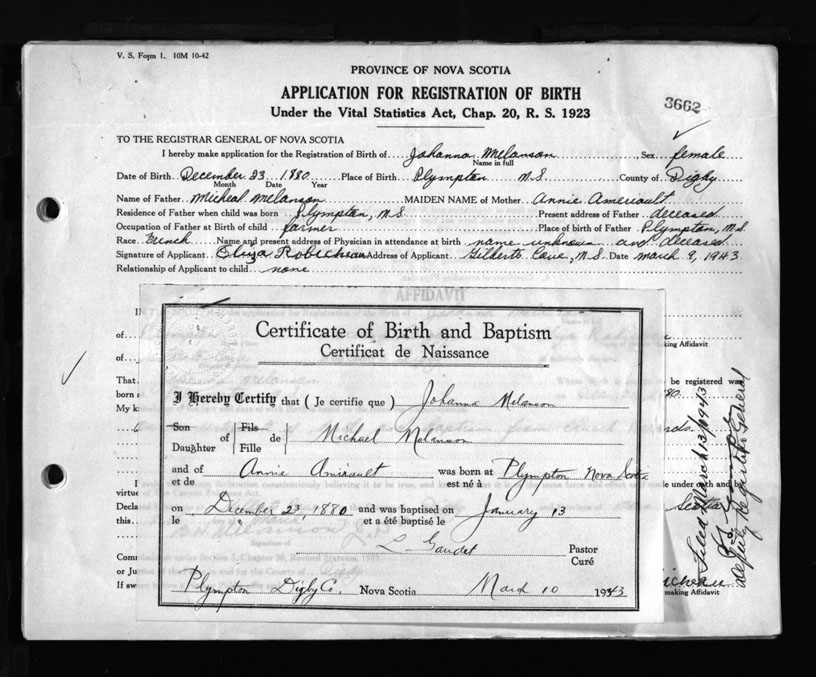 V. S. Form 1. 10M 10-42
PROVINCE OF NOVA SCOTIA
APPLICATION FOR REGISTRATION OF BIRTH
Under the Vital Statistics Act, Chap. 20, R. S. 1923
3662
TO THE REGISTRAR GENERAL OF NOVA SCOTIA
I hereby make application for the Registration of Birth of Johanna Melanson Sex female
Name in full
Date of Birth December 23 1880 Place of Birth Plympton N.S County of Digby
Month Date Year
Name of Father Micheal Melanson MAIDEN NAME of Mother Annie Ameriault
Residence of Father when child was born Plympton, N.S. Present address of Father deceased
Occupation of Father at Birth of child farmer Place of birth of Father Plympton, N.S
Race French Name and present address of Physician in attendance at birth name unknown and deceased
Signature of Applicant Eliza Robicheau Address of Applicant Gilberts Cove, N.S. Date March 9, 1943
Relationship of Applicant to child none
AFFIDAVIT
Certificate of Birth and Baptism
Certificat de Naissance
I Hereby Certify that ( Je certifie que ) Johanna Melanson
Son of Fils de Michael Melanson
Daughter Fille
and of Annie Amirault was born at Plympton Nova Scotia
et de est né à
on December 23, 1880 and was baptised on January 13
le et a été baptisé le
L Gaudet Pastor
Curé
Plympton Digby Co. Nova Scotia March 10 1943
IN
of
king Affidavit
of
That
be registered was
born
80
My k
ords.
I
made under oath and by
virtue
Decla
Scotia
this
Comm
or Ju
If sw
icheau
making Affidavit
Filed March 13/1943
Deputy Registrar General